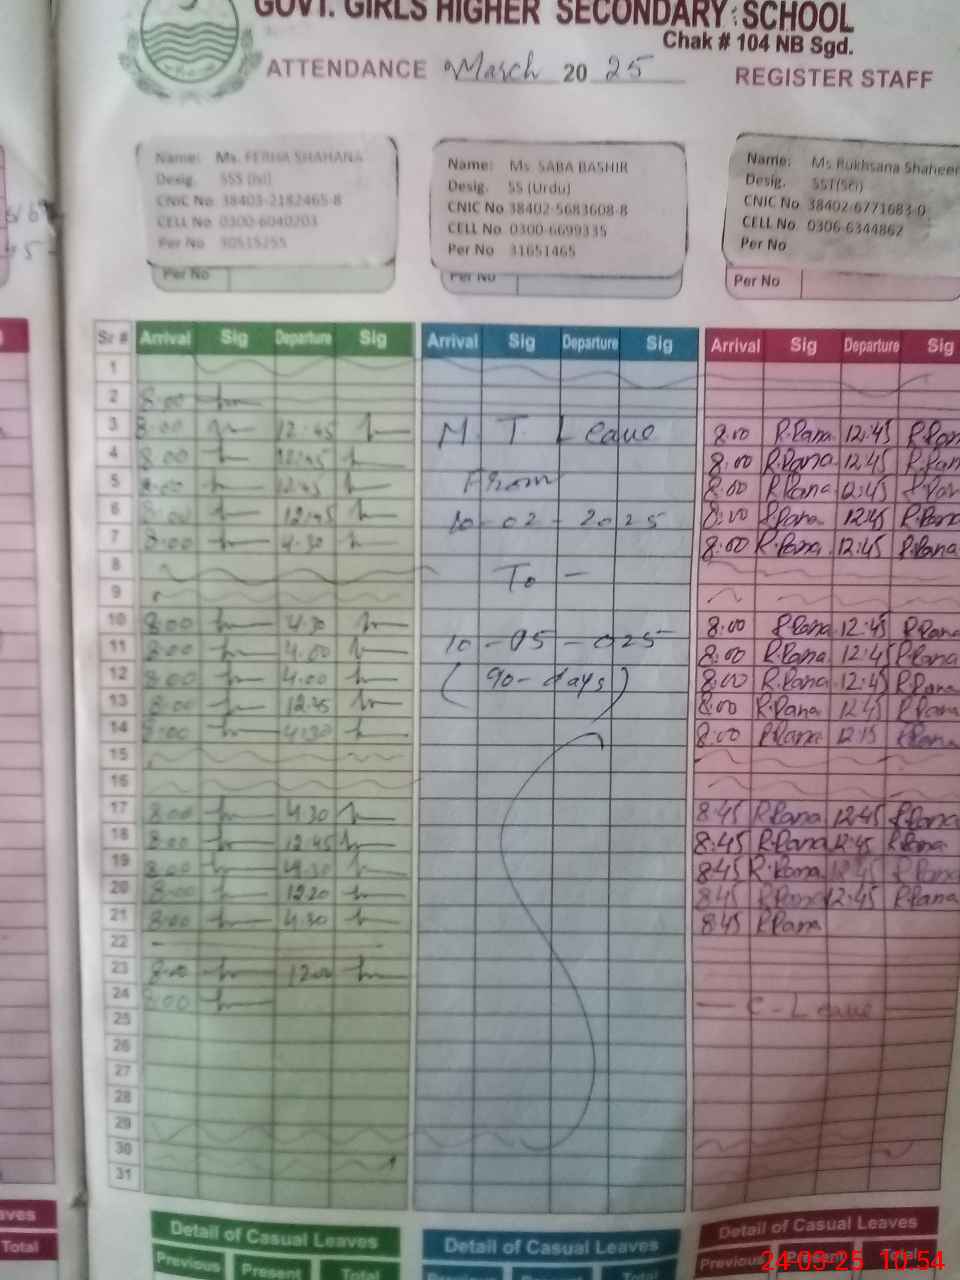 GOVT. GIRLS HIGHER SECONDARY SCHOOL
Chak # 104 NB Sgd.
ATTENDANCE March 2025 REGISTER STAFF
Name: Ms. FERHA SHAHANA
Desig. SSS (Isl)
CNIC No 38403-2182465-8
CELL No 0300-6040203
Per No 30515255
Per No
Name: Ms. SABA BASHIR
Desig. SS (Urdu)
CNIC No 38402-5683608-8
CELL No 0300-6699335
Per No 31651465
Per No
Name: Ms Rukhsana Shaheen
Desig. SST(Sci)
CNIC No 38402-6771683-0
CELL No 0306-6344862
Per No
Per No
Sr # Arrival Sig Departure Sig Arrival Sig Departure Sig Arrival Sig Departure Sig
1
2 8:00
3 8:00 12:45 M. T. Leave 8:00 R.Rana 12:45 R.Rana
4 8:00 12:45 8:00 R.Rana 12:45 R.Rana
5 8:00 12:45 From 8:00 R.Rana 12:45 R.Rana
6 8:00 12:45 10-02-2025 8:00 R.Rana 12:45 R.Rana
7 8:00 4:30 8:00 R.Rana 12:45 R.Rana
8 To -
9
10 8:00 4:30 8:00 R.Rana 12:45 R.Rana
11 8:00 4:00 10-05-025 8:00 R.Rana 12:45 R.Rana
12 8:00 4:00 (90-days) 8:00 R.Rana 12:45 R.Rana
13 8:00 12:45 8:00 R.Rana 12:45 R.Rana
14 8:00 4:30 8:00 R.Rana 12:15 R.Rana
15
16
17 8:00 4:30 8:45 R.Rana 12:45 R.Rana
18 8:00 12:45 8:45 R.Rana 12:45 R.Rana
19 8:00 4:30 8:45 R.Rana 12:45 R.Rana
20 8:00 12:20 8:45 R.Rana 12:45 R.Rana
21 8:00 4:30 8:45 R.Rana
22
23 8:00 12:00
24 8:00 C-Leave
25
26
27
28
29
30
31
Detail of Casual Leaves Detail of Casual Leaves Detail of Casual Leaves
Previous Present Total Previous Present Total Previous Present Total
Total
24-03-25 10:54